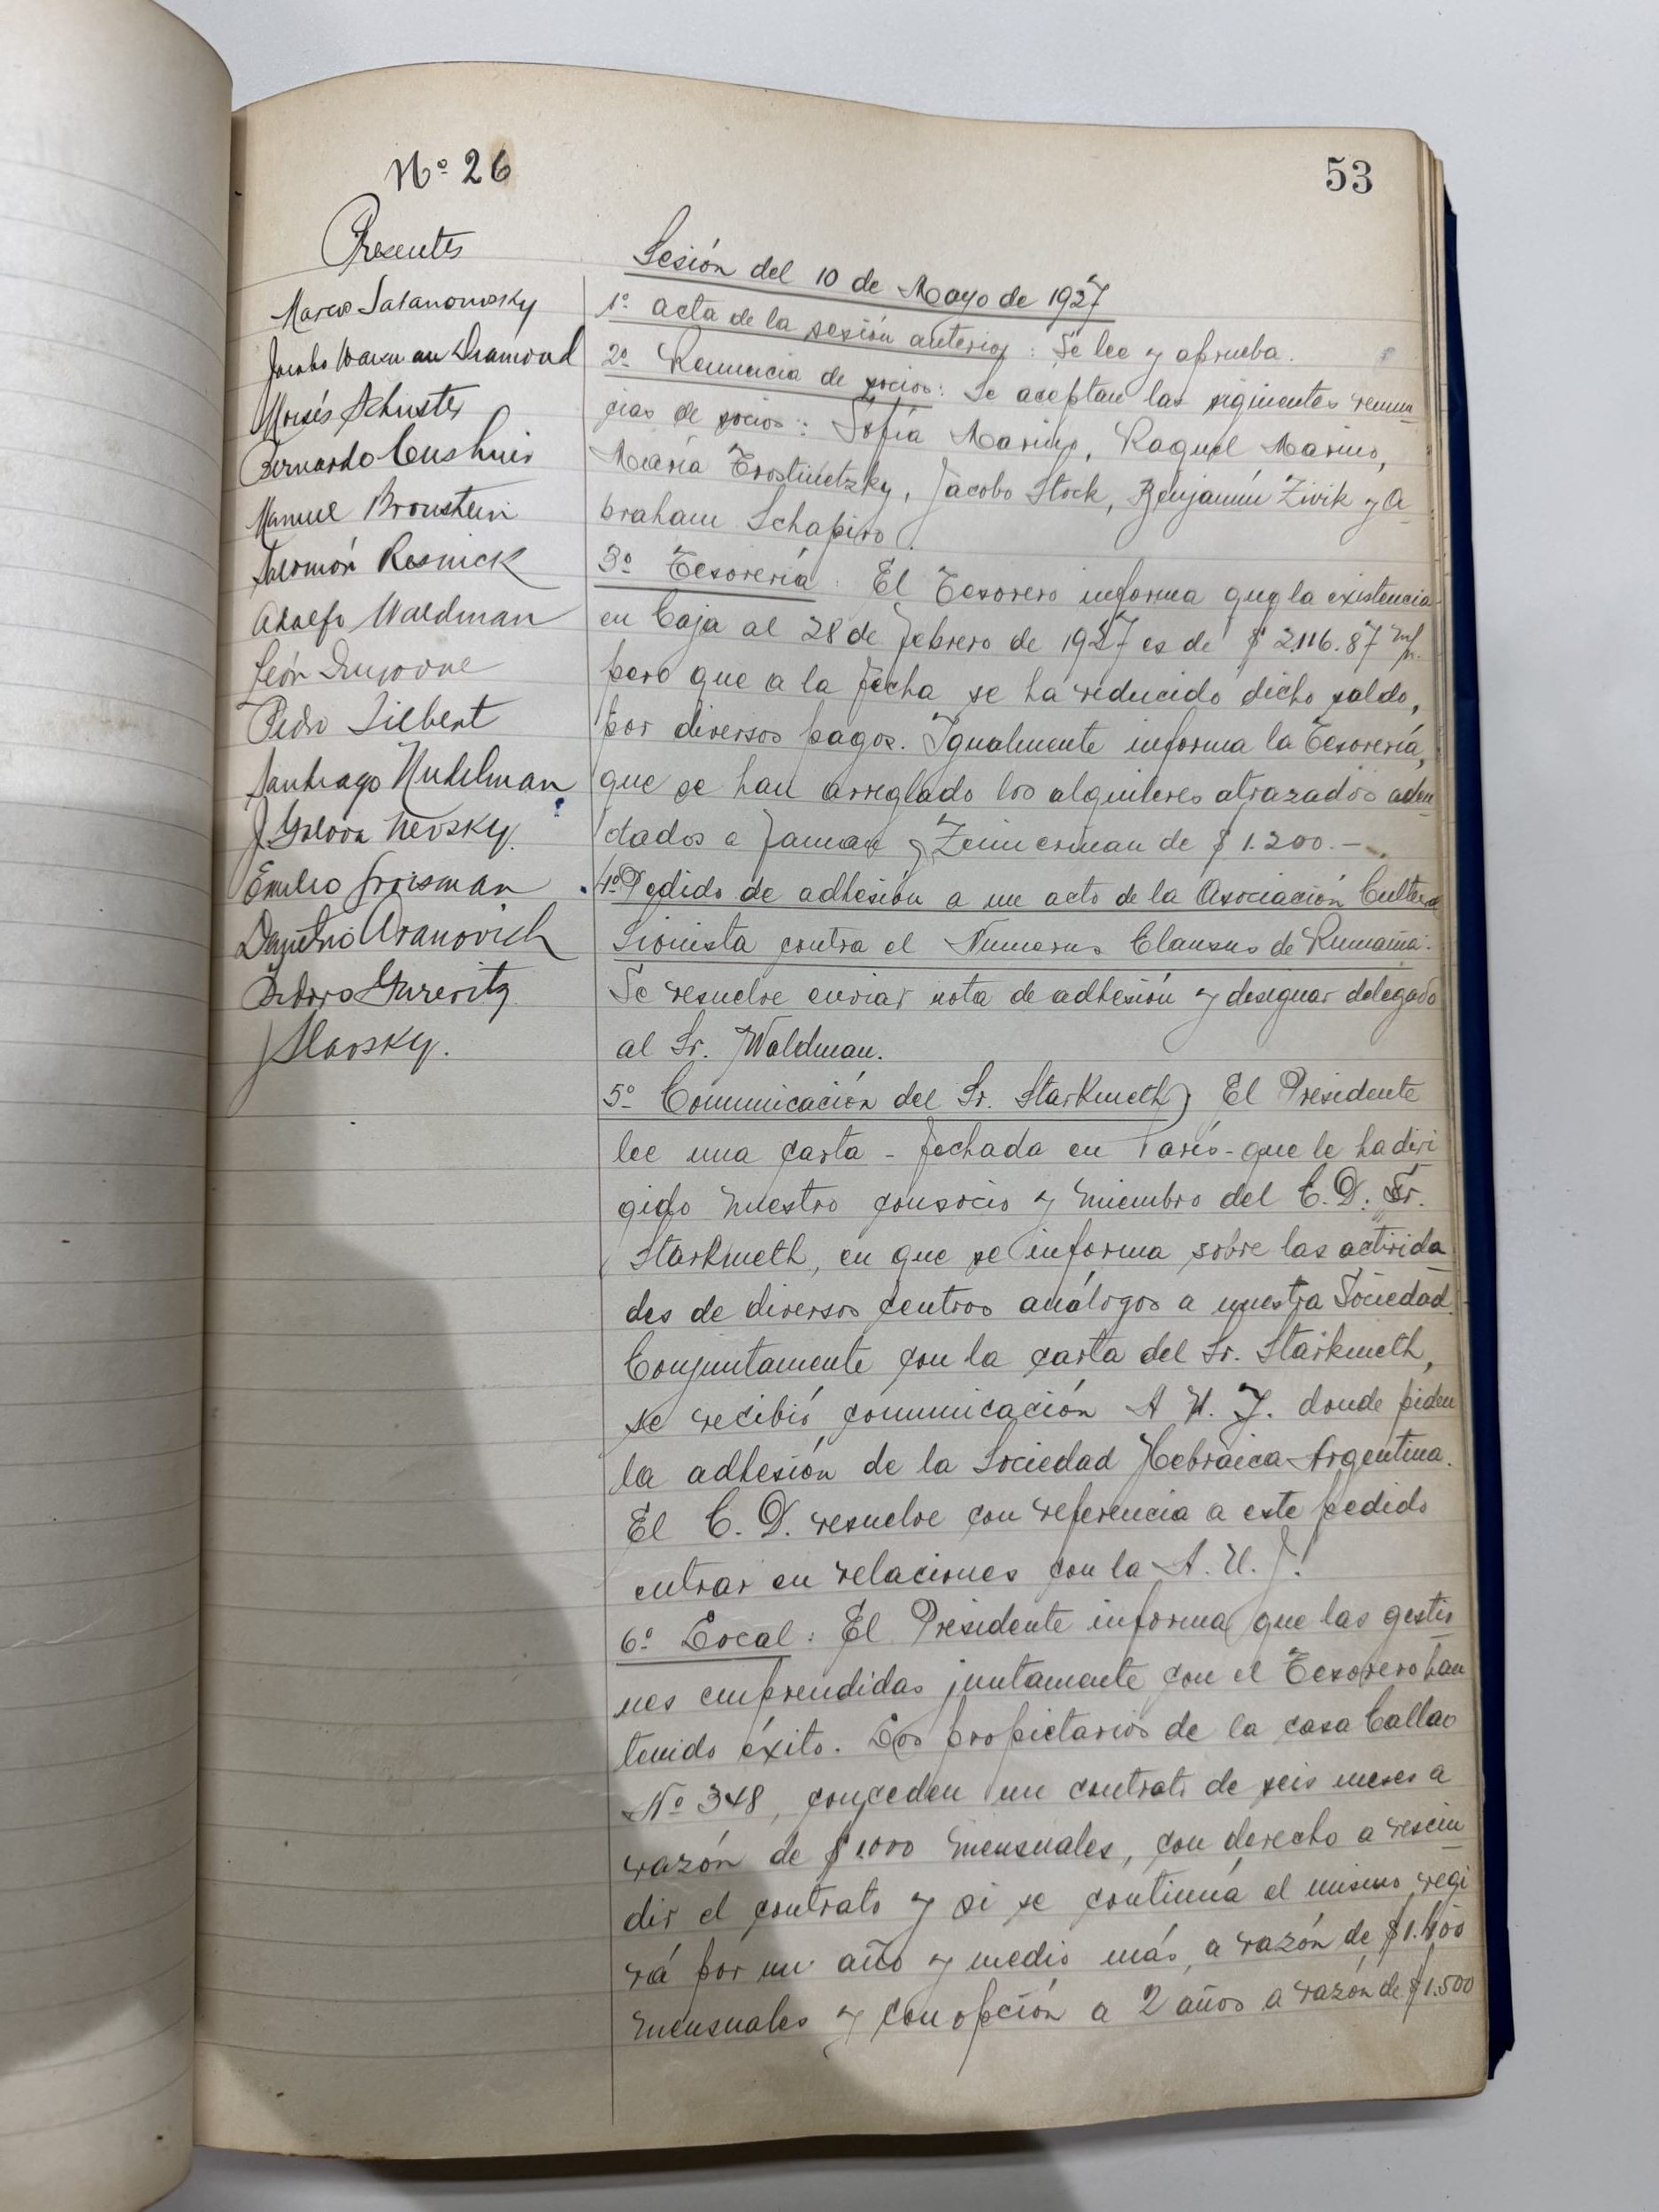 53
Nº 26
Presentes
Marcos Satanowsky
Jacobo Waxman Diamond
Moisés Schuster
Bernardo Cushnir
Manuel Bronstein
Salomón Resnick
Adolfo Waldman
León Dujovne
Pedro Silbert
Santiago Nudelman
Nevsky.
Emilio Groisman
Demetrio Aranovich
Isidoro Gurevitz
J Slavsky.
Sesión del 10 de Mayo de 1927
1º acta de la sesión anterior: Se lee y aprueba.
2º Renuncia de socios: Se aceptan las siguientes renun
cias de socios: Sofía Marino, Raquel Marino,
María Trostinetzky, Jacobo Stock, Benjamín Zivik y A
braham Schapiro.
3º Tesorería: El Tesorero informa que la existencia
en Caja al 28 de febrero de 1927 es de $ 2.116.87 m/n.
pero que a la fecha se ha reducido dicho saldo,
por diversos pagos. Igualmente informa la Tesorería,
que se han arreglado los alquileres atrazados adeu
dados a y Zimerman de $ 1.200.–
4º Pedido de adhesión a un acto de la Asociación Cultural
Sionista contra el Numerus Clausus de Rumania:
Se resuelve enviar nota de adhesión y designar delegado
al Sr. Waldman.
5º Comunicación del Sr. Starkmeth) El Presidente
lee una carta - fechada en París - que le ha diri
gido nuestro consocio y miembro del C. D. Sr.
Starkmeth, en que se informa sobre las activida
des de diversos centros análogos a nuestra Sociedad.
Conjuntamente con la carta del Sr. Starkmeth,
se recibió comunicación A U. J. donde piden
la adhesión de la Sociedad Hebraica Argentina.
El C. D. resuelve con referencia a este pedido
entrar en relaciones con la A. U. J.
6º Local: El Presidente informa que las gestio
nes emprendidas juntamente con el Tesorero han
tenido éxito. Los propietarios de la casa Callao
Nº 348, conceden un contrato de seis meses a
razón de $ 1.000 mensuales, con derecho a rescin
dir el contrato y si se continúa el mismo regi
rá por un año y medio más, a razón de $ 1.400
mensuales y con opción a 2 años a razón de $ 1.500